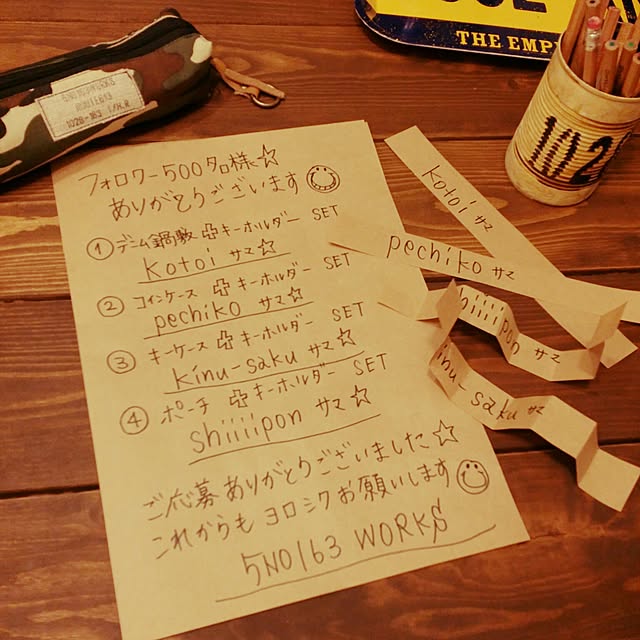 THE EMP
102
フォロワー500名様☆
ありがとうございます
① デニム鍋敷 ✚ キーホルダー SET
kotoi サマ☆
② コインケース ✚ キーホルダー SET
pechiko サマ☆
③ キーケース ✚ キーホルダー SET
kinu-saku サマ☆
④ ポーチ ✚ キーホルダー SET
shiiiipon サマ☆
ご応募ありがとうございました☆
これからも ヨロシクお願いします
5NO163 WORKS
kotoi サマ
pechiko サマ
hiiiipon サマ
inu-saku サマ